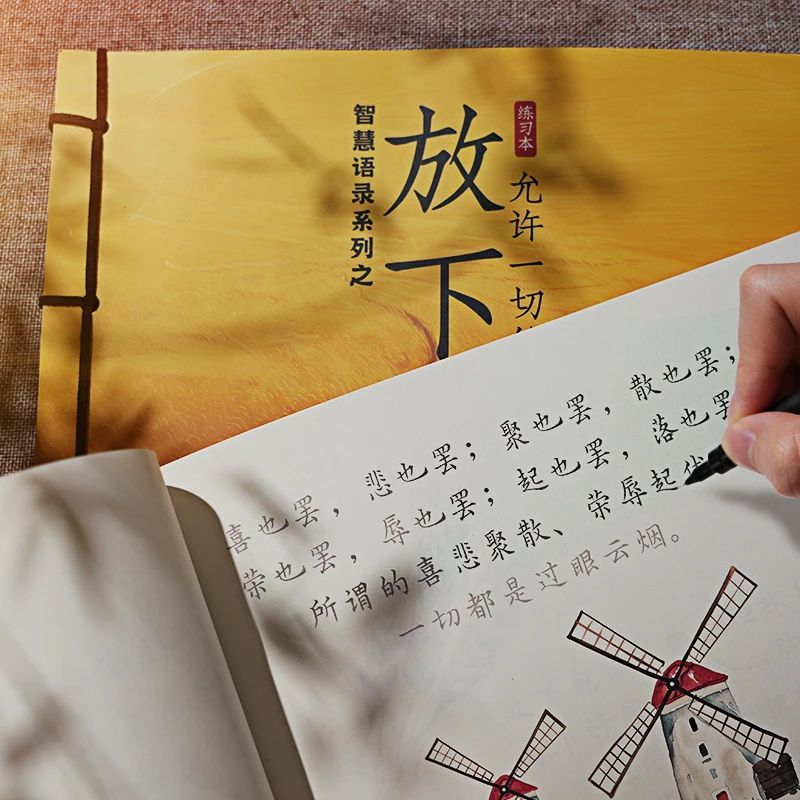 智慧语录系列之
放下
练习本
允许一切
喜也罢，悲也罢；聚也罢，散也罢；
荣也罢，辱也罢；起也罢，落也罢
所谓的喜悲聚散、荣辱起伏
一切都是过眼云烟。